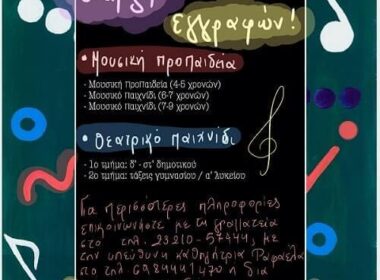 εγγραφών!
• Μουσική προπαιδεία
- Μουσική προπαιδεία (4-5 χρονών)
- Μουσικό παιχνίδι (6-7 χρονών)
- Μουσικό παιχνίδι (7-9 χρονών)
• Θεατρικό παιχνίδι
- 1ο τμήμα: δ' - στ' δημοτικού
- 2ο τμήμα: τάξεις γυμνασίου / α' λυκείου
Για περισσότερες πληροφορίες
επικοινωνήστε με τη γραμματεία
στο τηλ. 23210-57444, με
την υπεύθυνη καθηγήτρια Ραφαέλα
στο τηλ. ή δια